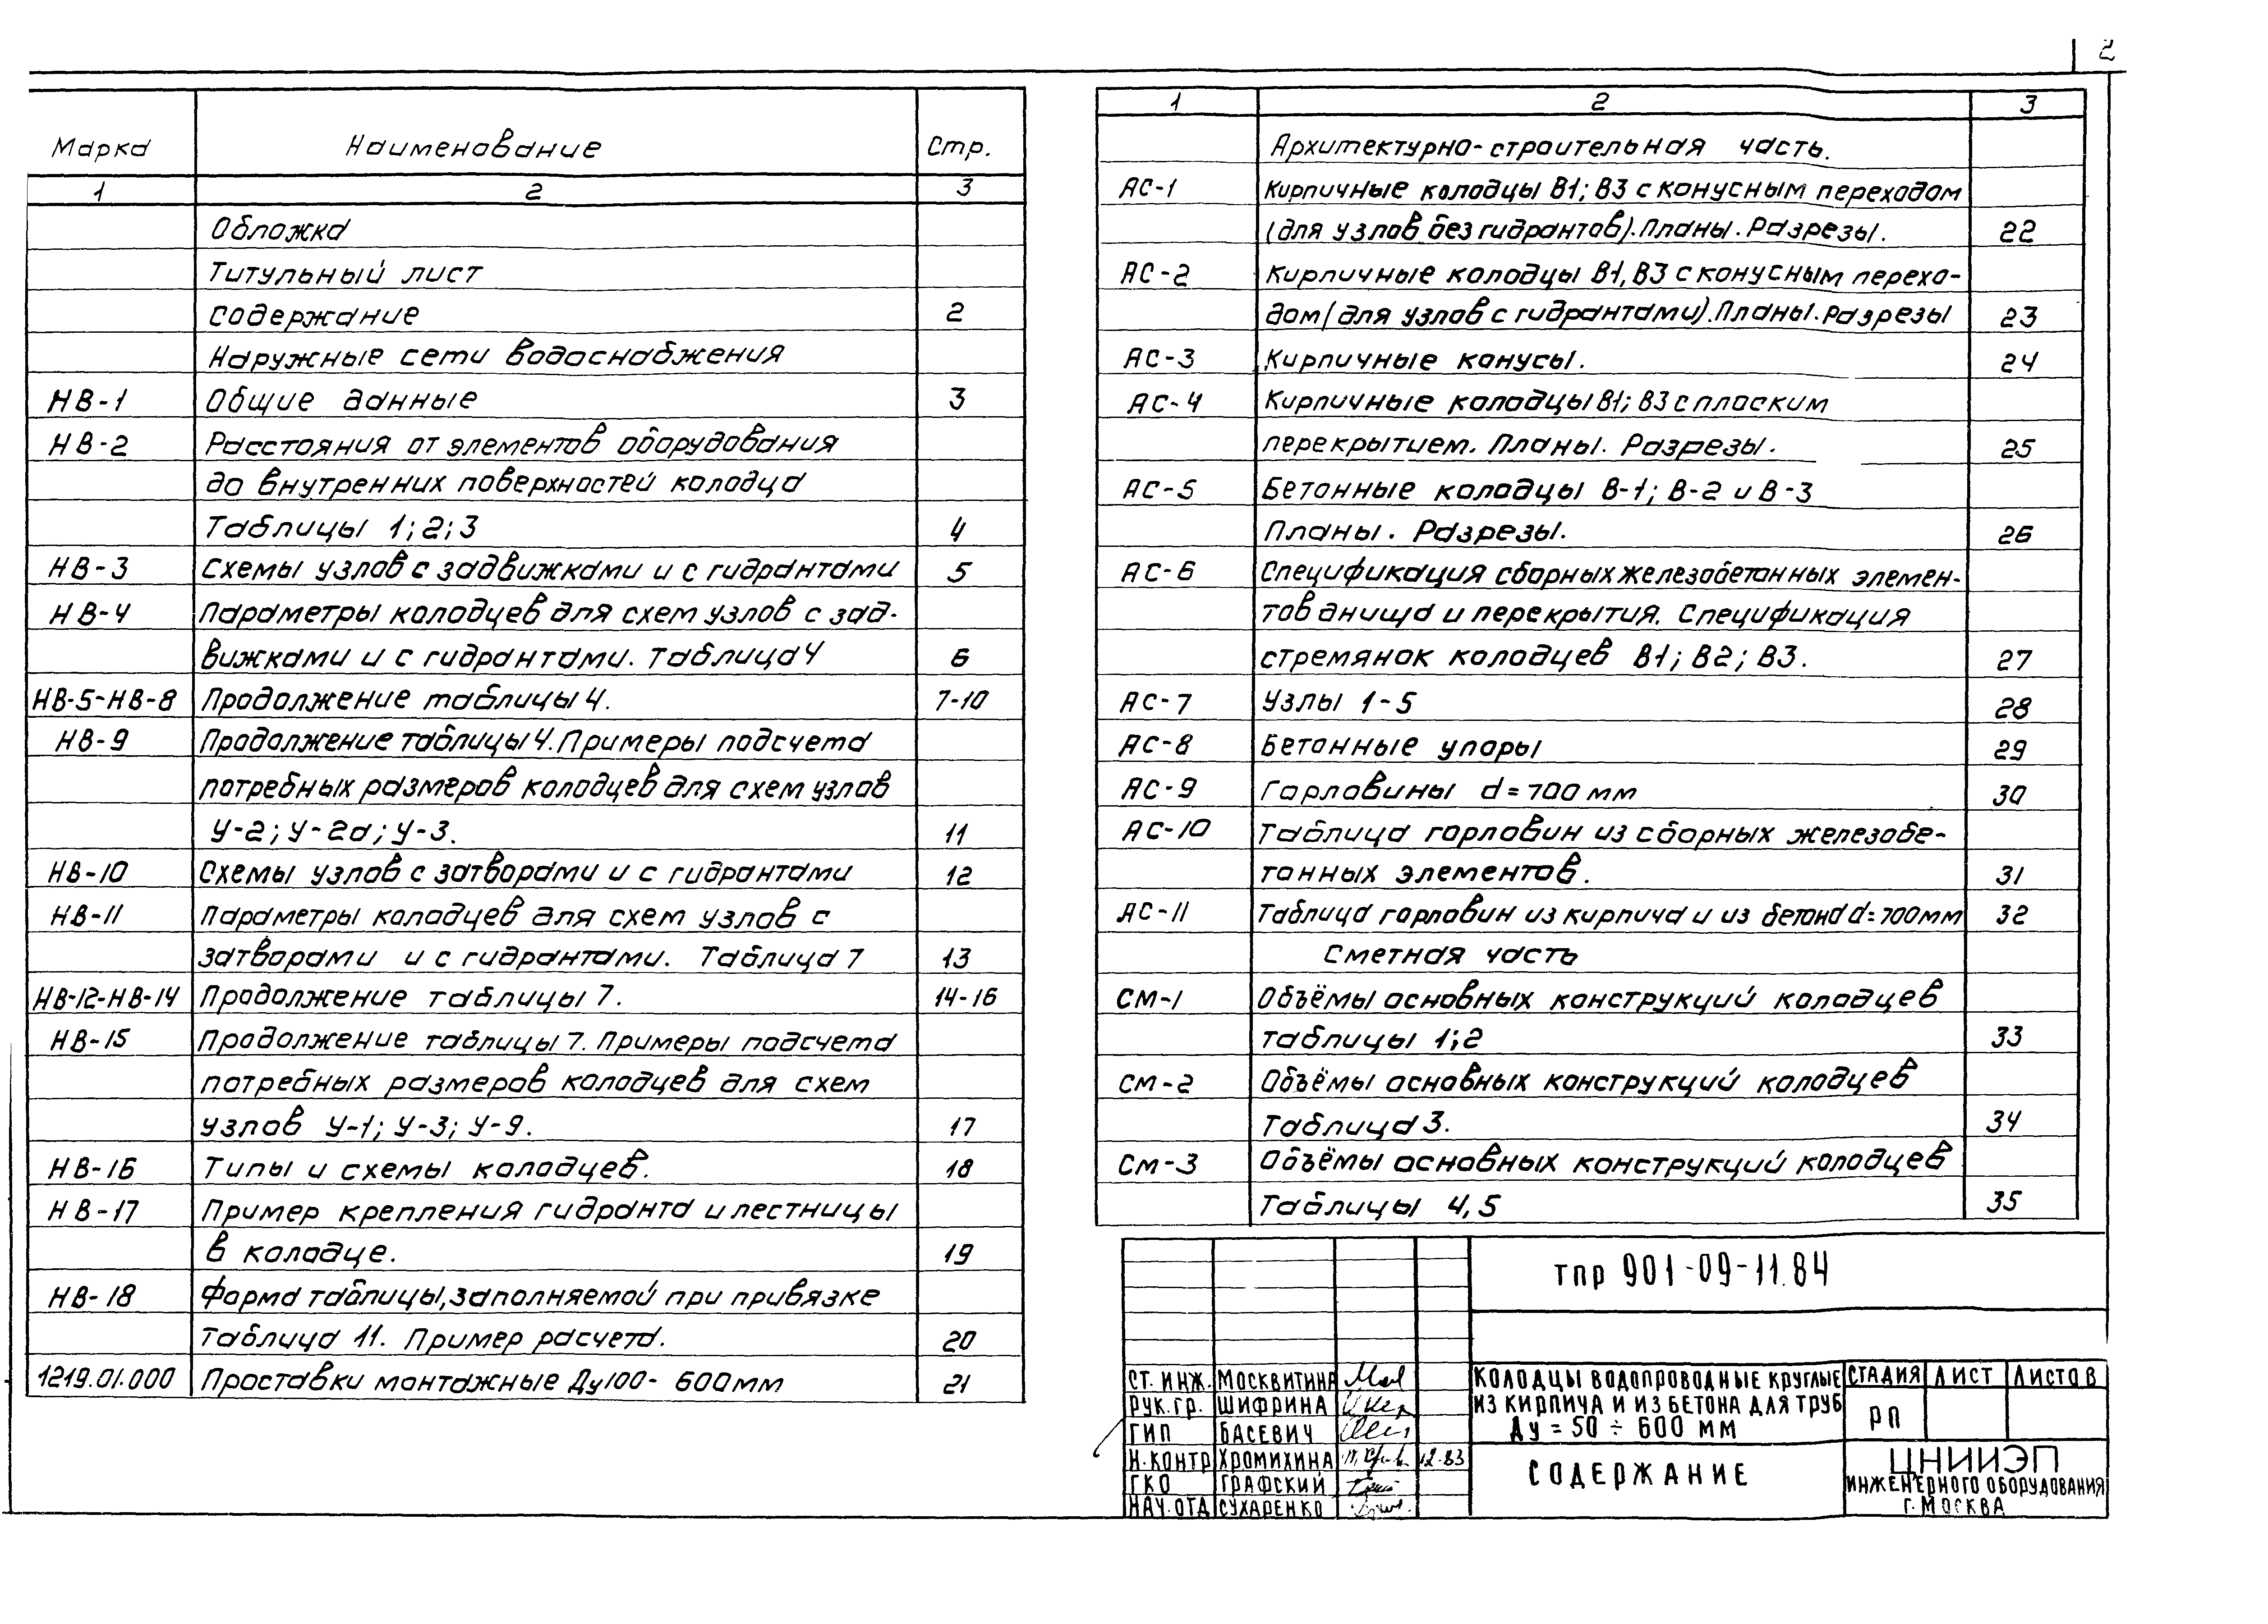 2
Марка Наименование Стр.
1 2 3
Обложка
Титульный лист
содержание 2
Наружные сети водоснабжения
НВ-1 Общие данные 3
НВ-2 Расстояния от элементов оборудования
до внутренних поверхностей колодца
Таблицы 1; 2; 3 4
НВ-3 Схемы узлов с задвижками и с гидрантами 5
НВ-4 Параметры колодцев для схем узлов с зад-
вижками и с гидрантами. Таблица 4 6
НВ-5-НВ-8 Продолжение таблицы 4. 7-10
НВ-9 Продолжение таблицы 4. Примеры подсчета
потребных размеров колодцев для схем узлов
У-2; У-2а; У-3. 11
НВ-10 Схемы узлов с затворами и с гидрантами 12
НВ-11 Параметры колодцев для схем узлов с
затворами и с гидрантами. Таблица 7 13
НВ-12-НВ-14 Продолжение таблицы 7. 14-16
НВ-15 Продолжение таблицы 7. Примеры подсчета
потребных размеров колодцев для схем
узлов У-1; У-3; У-9. 17
НВ-16 Типы и схемы колодцев. 18
НВ-17 Пример крепления гидранта и лестницы
в колодце. 19
НВ-18 Форма таблицы, заполняемой при привязке
Таблица 11. Пример расчета. 20
1219.01.000 Проставки монтажные Ду100-600мм 21
1 2 3
Архитектурно-строительная часть.
АС-1 Кирпичные колодцы В1; В3 с конусным переходом
(для узлов без гидрантов). Планы. Разрезы. 22
АС-2 Кирпичные колодцы В1, В3 с конусным перехо-
дом (для узлов с гидрантами). Планы. Разрезы 23
АС-3 Кирпичные конусы. 24
АС-4 Кирпичные колодцы В1; В3 с плоским
перекрытием. Планы. Разрезы. 25
АС-5 Бетонные колодцы В-1; В-2 и В-3
Планы. Разрезы. 26
АС-6 Спецификация сборных железобетонных элемен-
тов днища и перекрытия. Спецификация
стремянок колодцев В1; В2; В3. 27
АС-7 Узлы 1-5 28
АС-8 Бетонные упоры 29
АС-9 Горловины d=700 мм 30
АС-10 Таблица горловин из сборных железобе-
тонных элементов. 31
АС-11 Таблица горловин из кирпича и из бетона d=700мм 32
Сметная часть
СМ-1 Объёмы основных конструкций колодцев
таблицы 1; 2 33
СМ-2 Объёмы основных конструкций колодцев
Таблица 3. 34
СМ-3 Объёмы основных конструкций колодцев
Таблицы 4, 5 35
ТПР 901-09-11.84
СТ. ИНЖ. МОСКВИТИНА
РУК. ГР. ШИФРИНА
ГИП БАСЕВИЧ
Н.КОНТР ХРОМИХИНА 12.83
ГКО ГРАФСКИЙ
НАЧ.ОТД СУХАРЕНКО
КОЛОДЦЫ ВОДОПРОВОДНЫЕ КРУГЛЫЕ
ИЗ КИРПИЧА И ИЗ БЕТОНА ДЛЯ ТРУБ
Ду = 50 ÷ 600 ММ
СТАДИЯ ЛИСТ ЛИСТОВ
РП
СОДЕРЖАНИЕ
ЦНИИЭП
ИНЖЕНЕРНОГО ОБОРУДОВАНИЯ
Г. МОСКВА